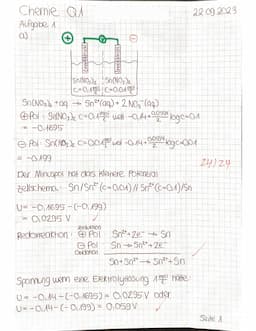 Chemie Q1
22.09.2023
Aufgabe 1
a)
⊕ ⊖
Sn(NO₃)₂ Sn(NO₃)₂
c=0,1 mol/l c=0,01 mol/l
Sn(NO₃)₂ + aq → Sn²⁺(aq) + 2 NO₃⁻(aq)
⊕ Pol: Sn(NO₃)₂ c=0,1 mol/l weil -0,14 + 0,059/2 log c=0,1
= -0,1695
⊖ Pol: Sn(NO₃)₂ c=0,01 mol/l weil -0,14 + 0,059/2 log c=0,01
= -0,199
24/24
Der Minuspol hat das kleinere Potenzial
Zellschema: Sn/Sn²⁺ (c=0,01) // Sn²⁺ (c=0,1)/Sn
U = -0,1695 - (-0,199)
= 0,0295 V
Reduktion
Redoxreaktion: ⊕ Pol Sn²⁺ + 2e⁻ → Sn
⊖ Pol Sn → Sn²⁺ + 2e⁻
Oxidation
Sn + Sn²⁺ → Sn²⁺ + Sn
Spannung wenn eine Elektrolytlösung 1 mol/l hätte:
U = -0,14 - (-0,1695) = 0,0295 V oder
U = -0,14 - (-0,199) = 0,059 V
Seite 1